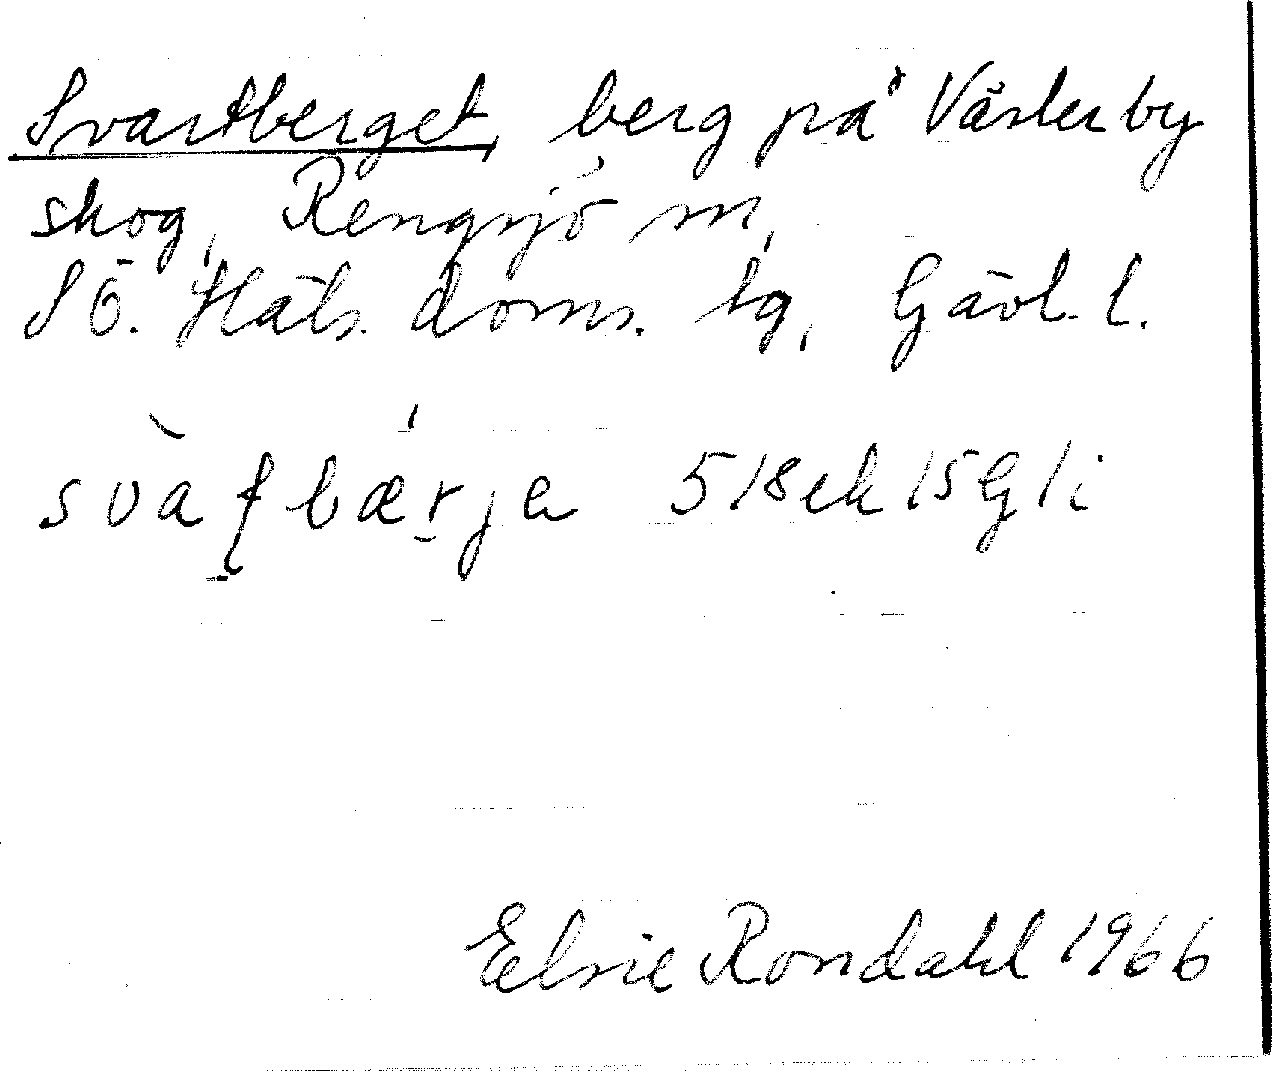 Svartberget, berg på Västerby
skog, Rengsjö sn,
SÖ. Häls. doms. tg, Gävl. l.
5 18 ek 15 G 1 i
Elsie Rondahl 1966